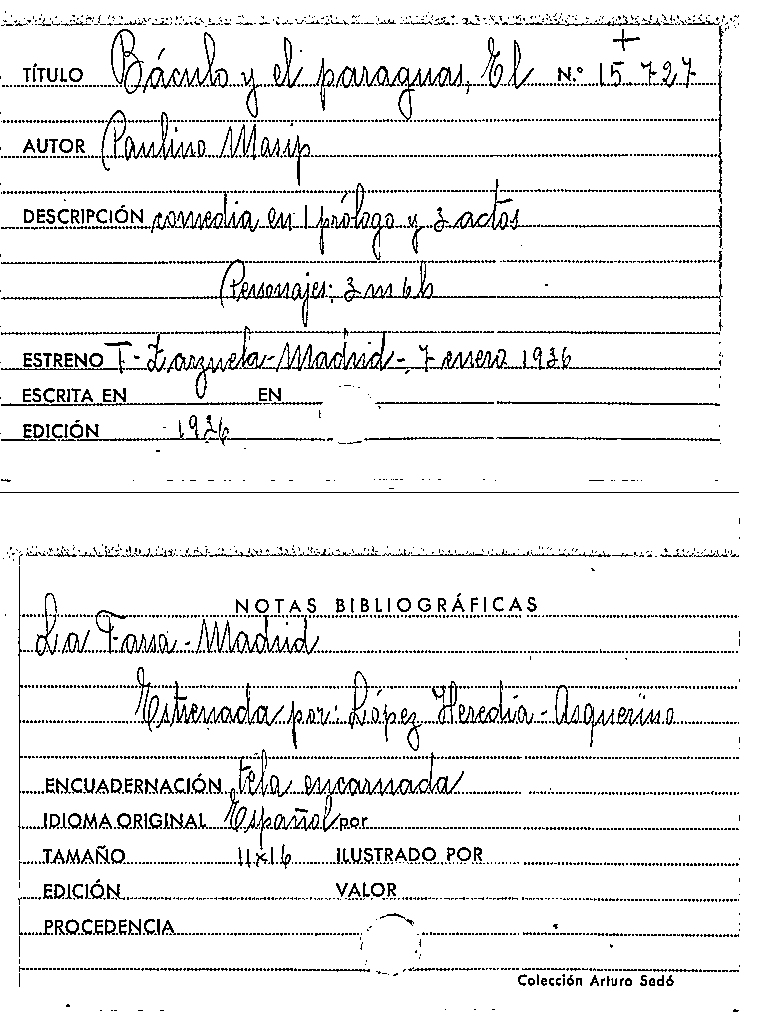 +
TÍTULO Báculo y el paraguas, El N.º 15.727
AUTOR Paulino Masip
DESCRIPCIÓN comedia en 1 prólogo y 3 actos
Personajes: 3 m 6 h
ESTRENO T- Zarzuela - Madrid - 7 enero 1936
ESCRITA EN EN
EDICIÓN 1936
NOTAS BIBLIOGRÁFICAS
La Farsa - Madrid
Estrenada por: López Heredia - Asquerino
ENCUADERNACIÓN tela encarnada
IDIOMA ORIGINAL Español por
TAMAÑO 11x16 ILUSTRADO POR
EDICIÓN VALOR
PROCEDENCIA
Colección Arturo Sedó